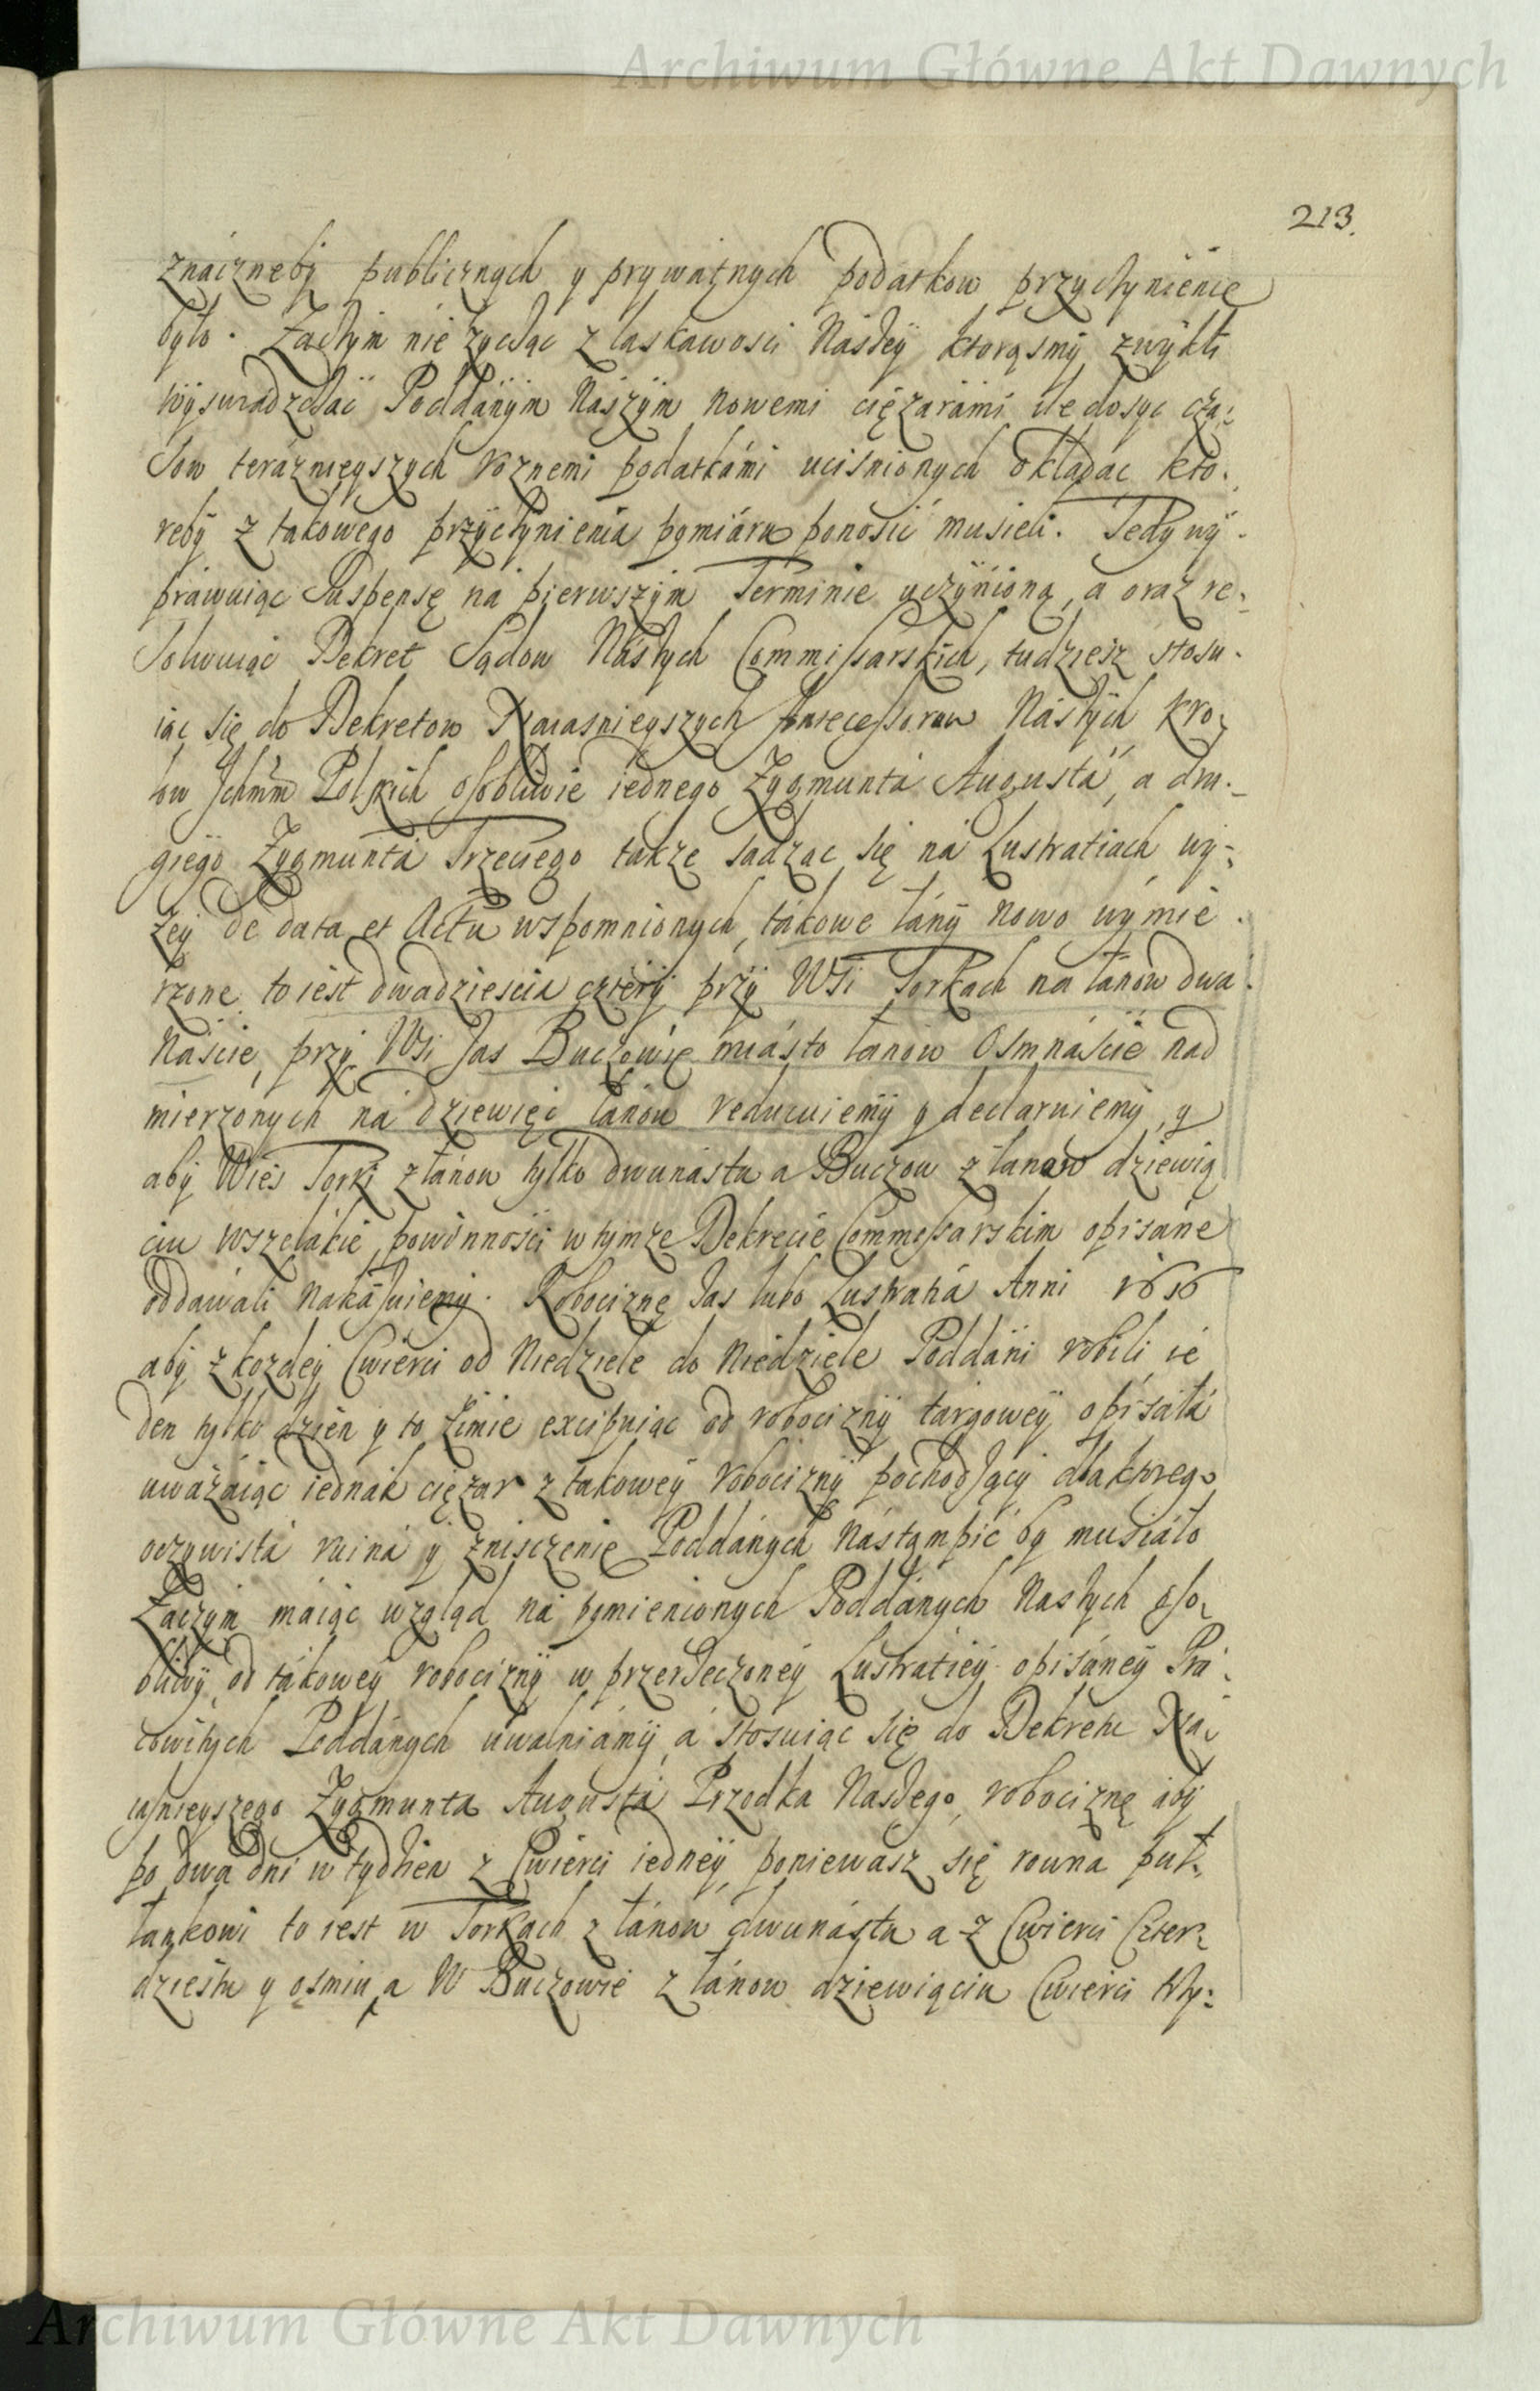 Archiwum Główne Akt Dawnych
213.
znaczneby publicznych y prywatnych podatkow przyczynienie
było. Zaczym nie życząc z łaskawosci Nászey ktorąsmy zwykli
wyswiadzczać Poddanym Naszym nowemi cięzarámi ile dosyc cza-
sow teraznieyszych roznemi podatkámi ucisnionych okładac kto-
reby z takowego przyczynienia pomiáru ponosić musieli. Tedy wy-
práwuiąc Suspensę ná pierwszym Terminie uczynioną, a oraz re-
solwuiąc Dekret Sądow Nászych Commissarskich, tudziesz stosu-
iąc się do Dekretow Naiasnieyszych Antecessorow Nászych Kro-
low Ichmm Polskich osobliwie iednego Zygmunta Augusta, a dru-
giego Zygmunta Trzeciego takze sadząc się ná Lustratiach wy-
żey de data et Actu wspomnionych, tákowe łány nowo wymie-
rzone to iest dwadziescia cztery przy Wsi Torkach na łanow dwa-
náscie, przy Wsi zas Buczowie miásto łanow Osmnáscie nad
mierzonych ná dziewięc łánow reducuiemy y declaruiemy, y
aby Wies Torki z łánow tylko dwunástu a Buczow z łanow dziewią
ciu wszelákie powinnosci w tymze Dekrecie Commissarskim opisane
oddawáli nakázuiemy. Robociznę zas lubo Lustratia Anni 1616
aby z kozdey Cwierci od Niedziele do Niedziele Poddáni robili ie
den tylko dzien y to Zimie excipuiąc od robocizny targowey opisáła
uwáżáiąc iednák cięzar z takowey robocizny pochodzący dla ktorego
oczywista ruiná y zniszczenie Poddánych nástąmpić by musiáło
Zaczym máiąc wzgląd ná pomienionych Poddánych Naszych oso-
bliwy, od tákowey robocizny w przerzeczoney Lustratiey opisáney Prá-
cowitych Poddánych uwalniámy, á stosuiąc się do Dekretu Náia-
sniegszego Zygmunta Augusta Przodka Naszego, robociznę áby
po dwa dni w tydzien z Cwierci iedney poniewasz się rowna puł-
łankowi to iest w Torkach z łánow dwunástu a z Cwierci Czter-
dziestu y osmiu, a W Buczowie z łánow dziewięciu Cwierci trzy-
Archiwum Główne Akt Dawnych